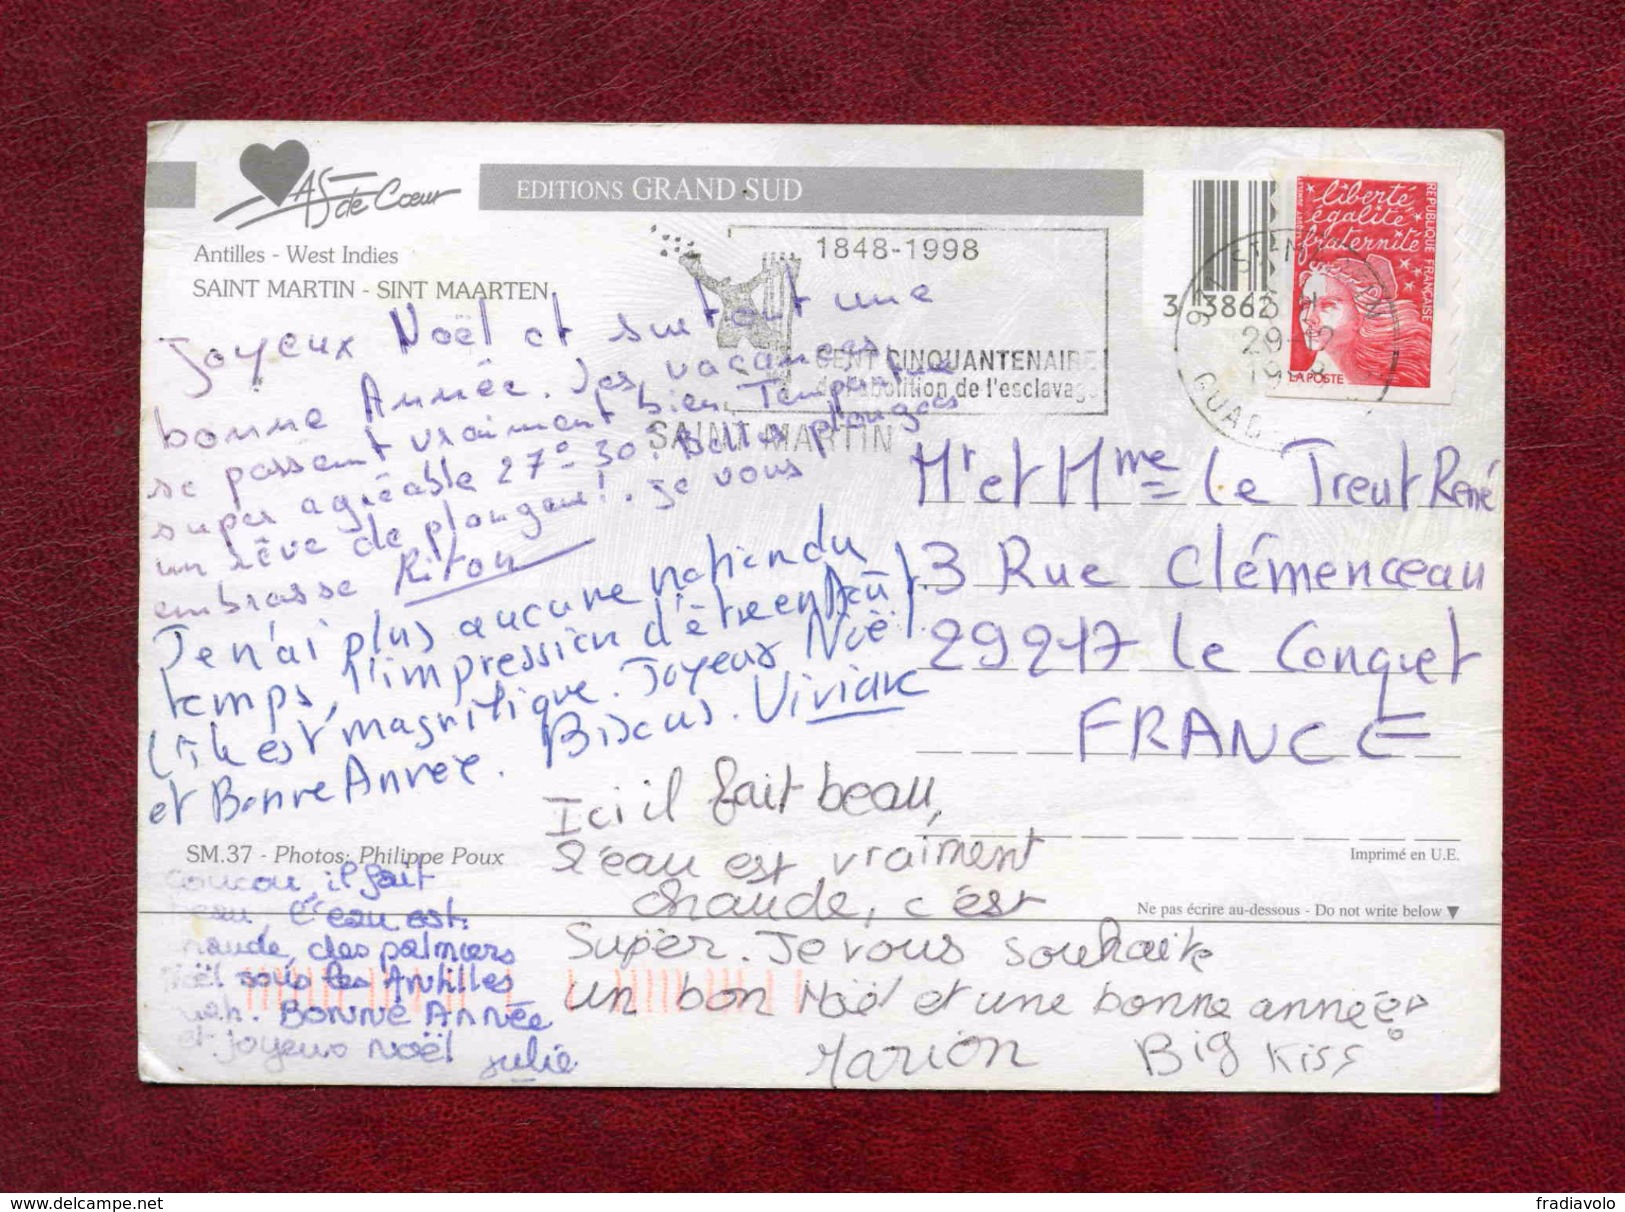 As de Cœur
EDITIONS GRAND SUD
Antilles - West Indies
SAINT MARTIN - SINT MAARTEN
1848-1998
CENT CINQUANTENAIRE
de l'abolition de l'esclavage
SAINT MARTIN
3 3862
29-12
GUAD
liberté
égalité
fraternité
RÉPUBLIQUE FRANÇAISE
LA POSTE
Joyeux Noël et surtout une
bonne Année. Les vacances
se passent vraiment bien Température
super agréable 27°-30°. Belles plongées
un rêve de plongeur!. Je vous
embrasse Riton
Je n'ai plus aucune notion du
temps, l'impression d'être en Août
L'île est magnifique. Joyeux Noël
et Bonne Année. Bisous. Viviane
Mr et Mme Le Treut René
3 Rue Clémenceau
29217 Le Conquet
FRANCE
SM.37 - Photos: Philippe Poux
Imprimé en U.E.
Ne pas écrire au-dessous - Do not write below
coucou, il fait
beau, l'eau est
chaude, des palmiers
Noël sous les Antilles
. BONNE ANNÉE
et joyeux noël
Julie
Ici il fait beau,
l'eau est vraiment
chaude, c'est
Super. Je vous souhaite
un bon Noël et une bonne année!
Marion Big Kiss
www.delcampe.net
fradiavolo